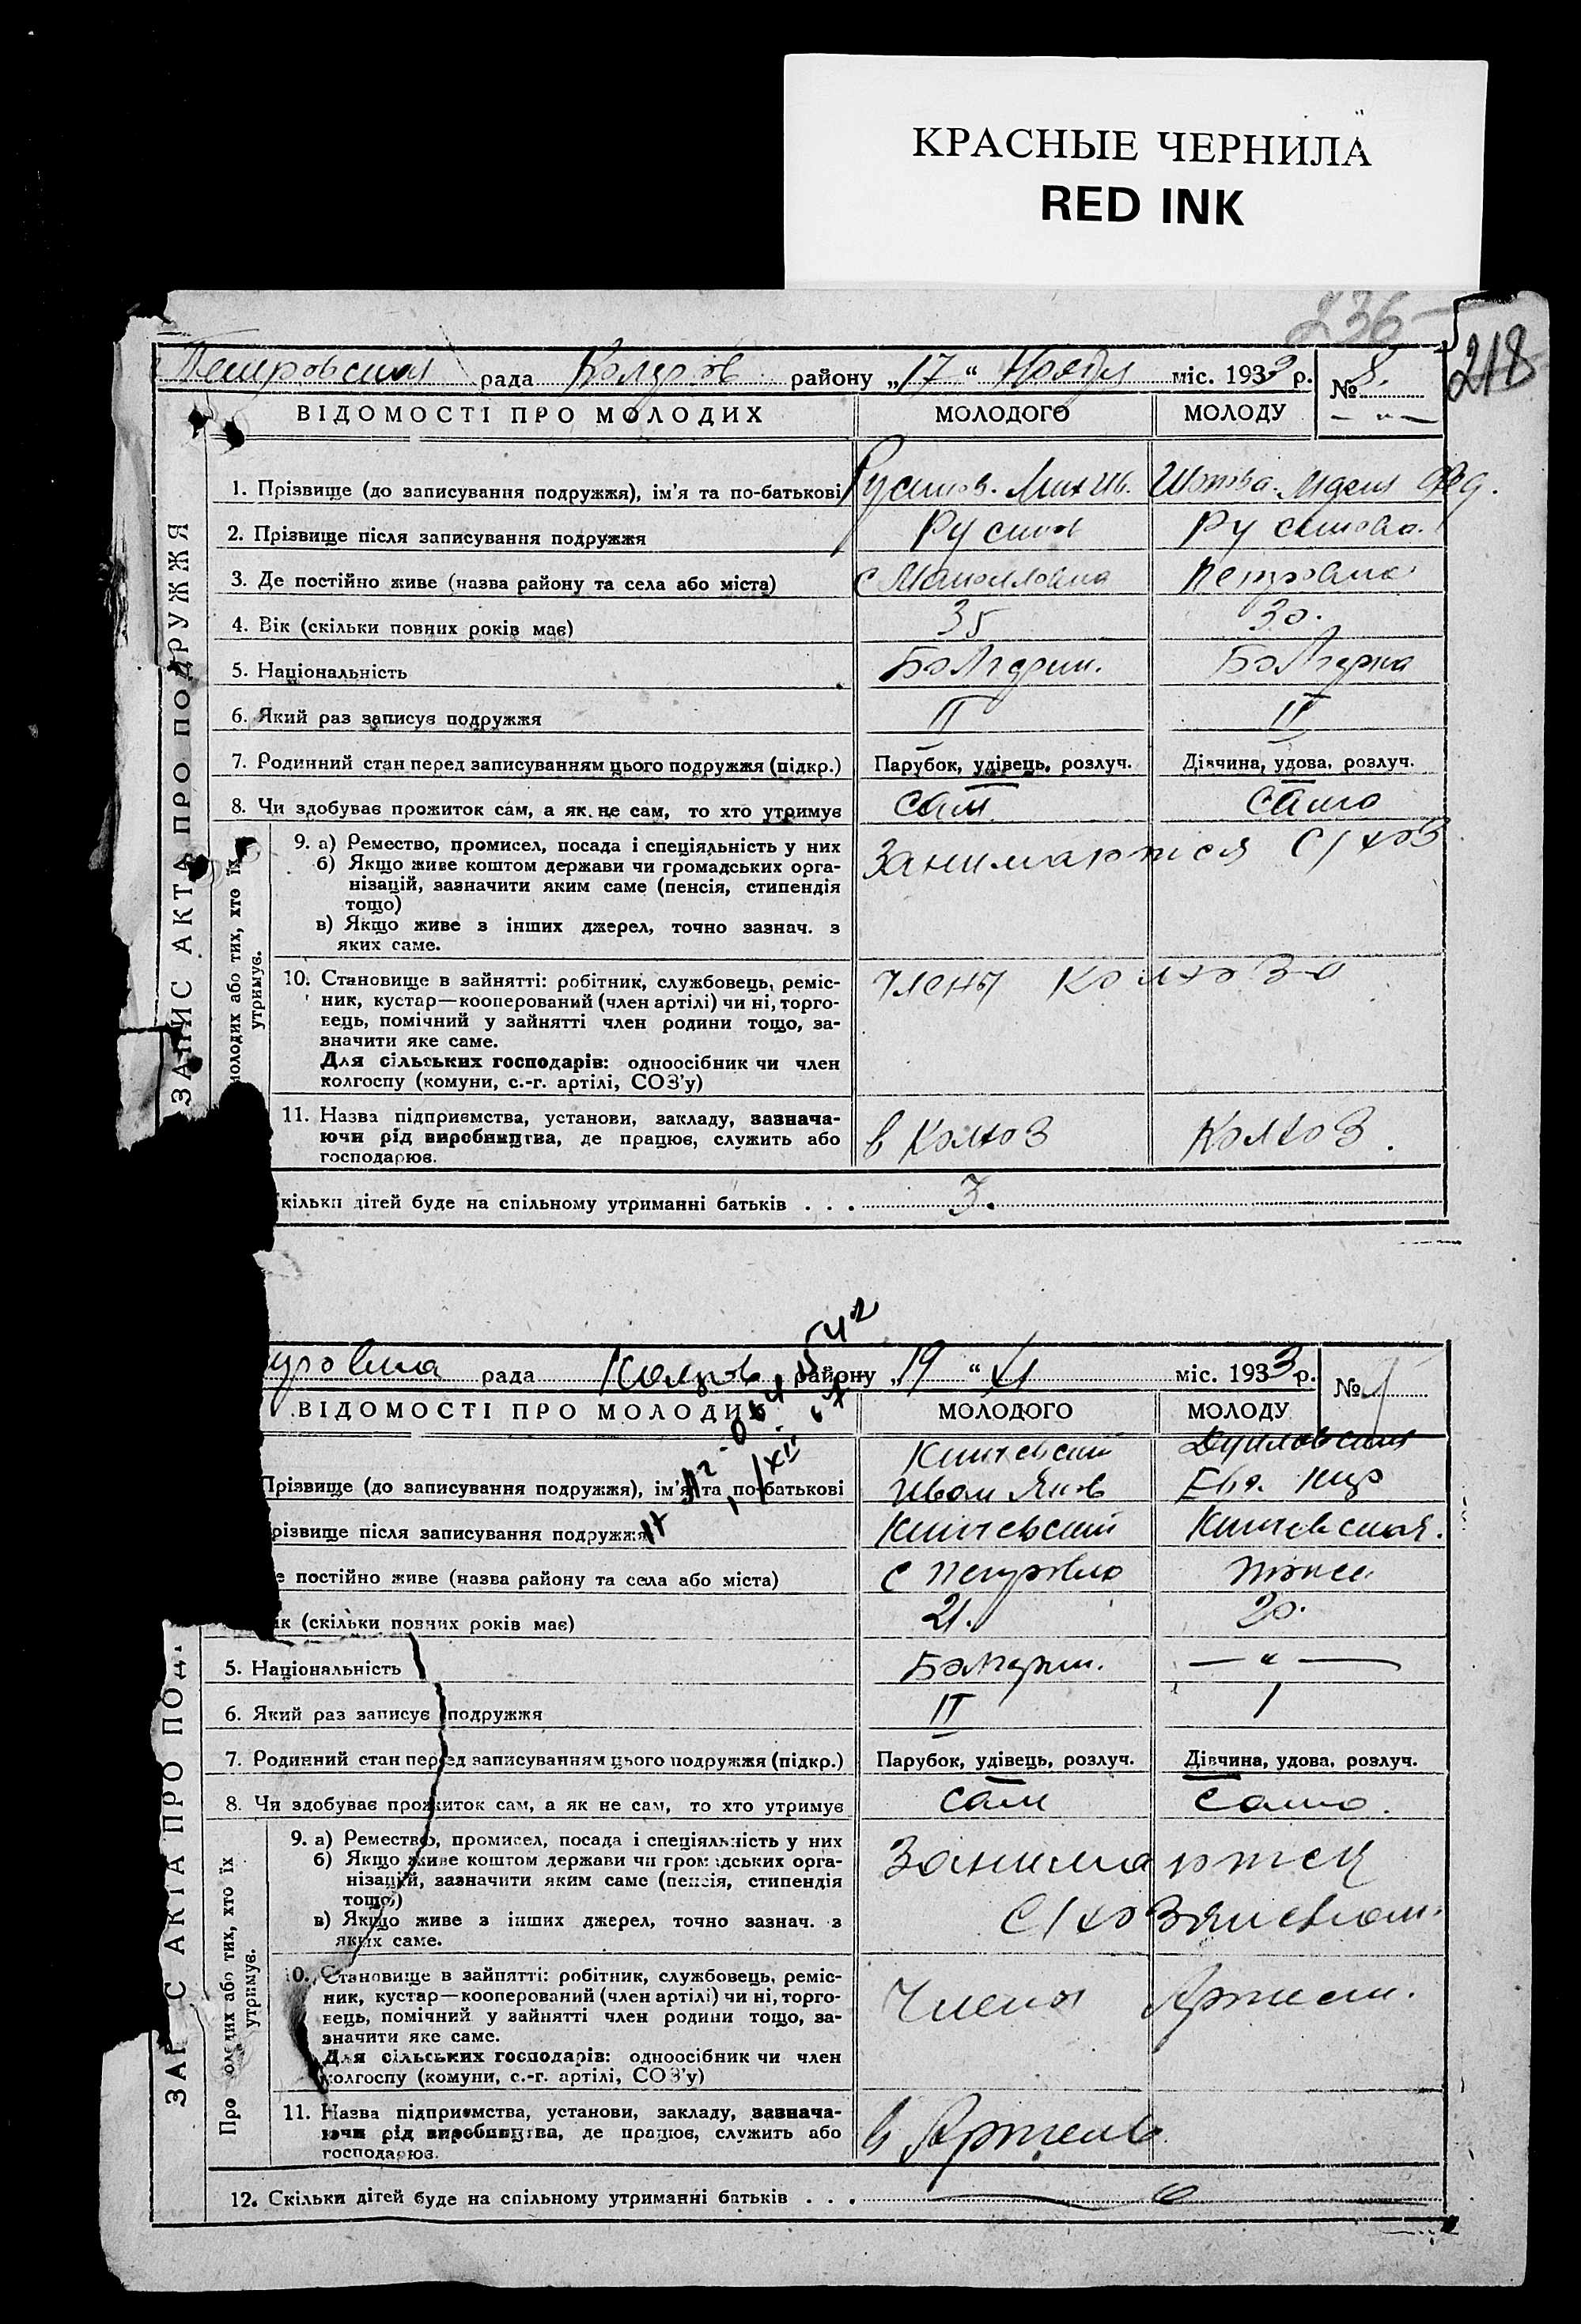 КРАСНЫЕ ЧЕРНИЛА
RED INK
236
218
Петровская рада Коларов району „17“ Ноября міс. 1933 р. № 8.
ВІДОМОСТІ ПРО МОЛОДИХ МОЛОДОГО МОЛОДУ — „ —
ЗАПИС АКТА ПРО ПОДРУЖЖЯ
1. Прізвище (до записування подружжя), ім'я та по-батькові Русинов. Мих Ив.
2. Прізвище після записування подружжя Русинов Русинова.
3. Де постійно живе (назва району та села або міста) с Мануиловка Петровка
4. Вік (скільки повних років має) 35 30.
5. Національність Болгарин. Болгарка
6. Який раз записує подружжя II II
7. Родинний стан перед записуванням цього подружжя (підкр.) Парубок, удівець, розлуч. Дівчина, удова, розлуч.
8. Чи здобуває прожиток сам, а як не сам, то хто утримує сам. сама
молодих або тих, хто їх утримує.
9. а) Ремество, промисел, посада і спеціяльність у них Занимаются С/хоз
б) Якщо живе коштом держави чи громадських орга-
нізацій, зазначити яким саме (пенсія, стипендія
тощо)
в) Якщо живе з інших джерел, точно зазнач. з
яких саме.
10. Становище в зайнятті: робітник, службовець, реміс- члены колхоза
ник, кустар—кооперований (член артілі) чи ні, торго-
вець, помічний у зайнятті член родини тощо, за-
значити яке саме.
Для сільських господарів: одноосібник чи член
колгоспу (комуни, с.-г. артілі, СОЗ'у)
11. Назва підприємства, установи, закладу, зазнача-
ючи рід виробництва, де працює, служить або в Колхоз Колхоз.
господарює.
кільки дітей буде на спільному утриманні батьків . . . 3.
тровка рада Коларов району „19“ XI міс. 1933 р. №
ВІДОМОСТІ ПРО МОЛОДИХ МОЛОДОГО МОЛОДУ
Прізвище (до записування подружжя), ім'я та по-батькові Иван Яков Евд. Кир
різвище після записування подружжя
е постійно живе (назва району та села або міста) с Петровка тоже
ік (скільки повних років має) 21. 20.
5. Національність Болгарин. — „ —
6. Який раз записує подружжя II I
7. Родинний стан перед записуванням цього подружжя (підкр.) Парубок, удівець, розлуч. Дівчина, удова, розлуч.
8. Чи здобуває прожиток сам, а як не сам, то хто утримує сам сама.
ЗАП С АКТА ПРО ПОД
Про олодих або тих, хто їх утримує.
9. а) Ремество, промисел, посада і спеціяльність у них Занимаются
б) Якщо живе коштом держави чи громадських орга-
нізацій, зазначити яким саме (пенсія, стипендія
тощо) С/хозяйством.
в) Якщо живе з інших джерел, точно зазнач. з
яких саме.
10. Становище в зайнятті: робітник, службовець, реміс-
ник, кустар—кооперований (член артілі) чи ні, торго- Члены Артели.
вець, помічний у зайнятті член родини тощо, за-
значити яке саме.
Для сільських господарів: одноосібник чи член
колгоспу (комуни, с.-г. артілі, СОЗ'у)
11. Назва підприємства, установи, закладу, зазнача-
ючи рід виробництва, де працює, служить або в Артель
господарює.
12. Скільки дітей буде на спільному утриманні батьків . . .